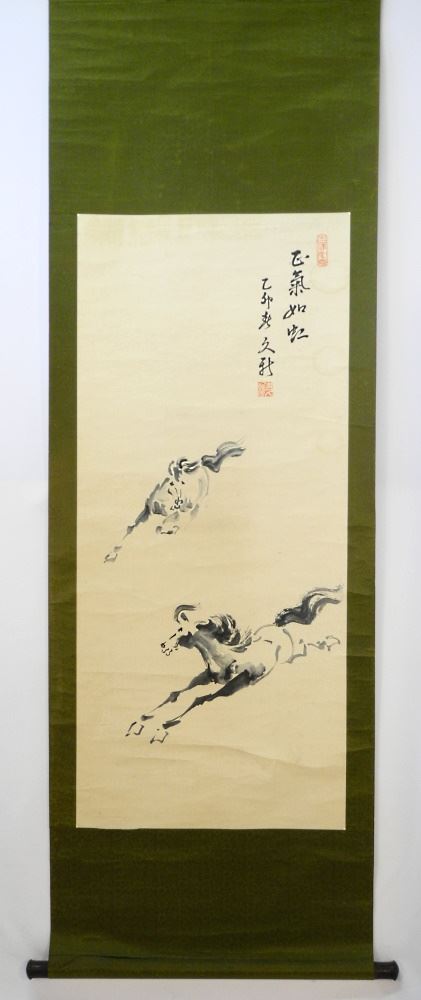 正氣如虹
乙卯春 文新